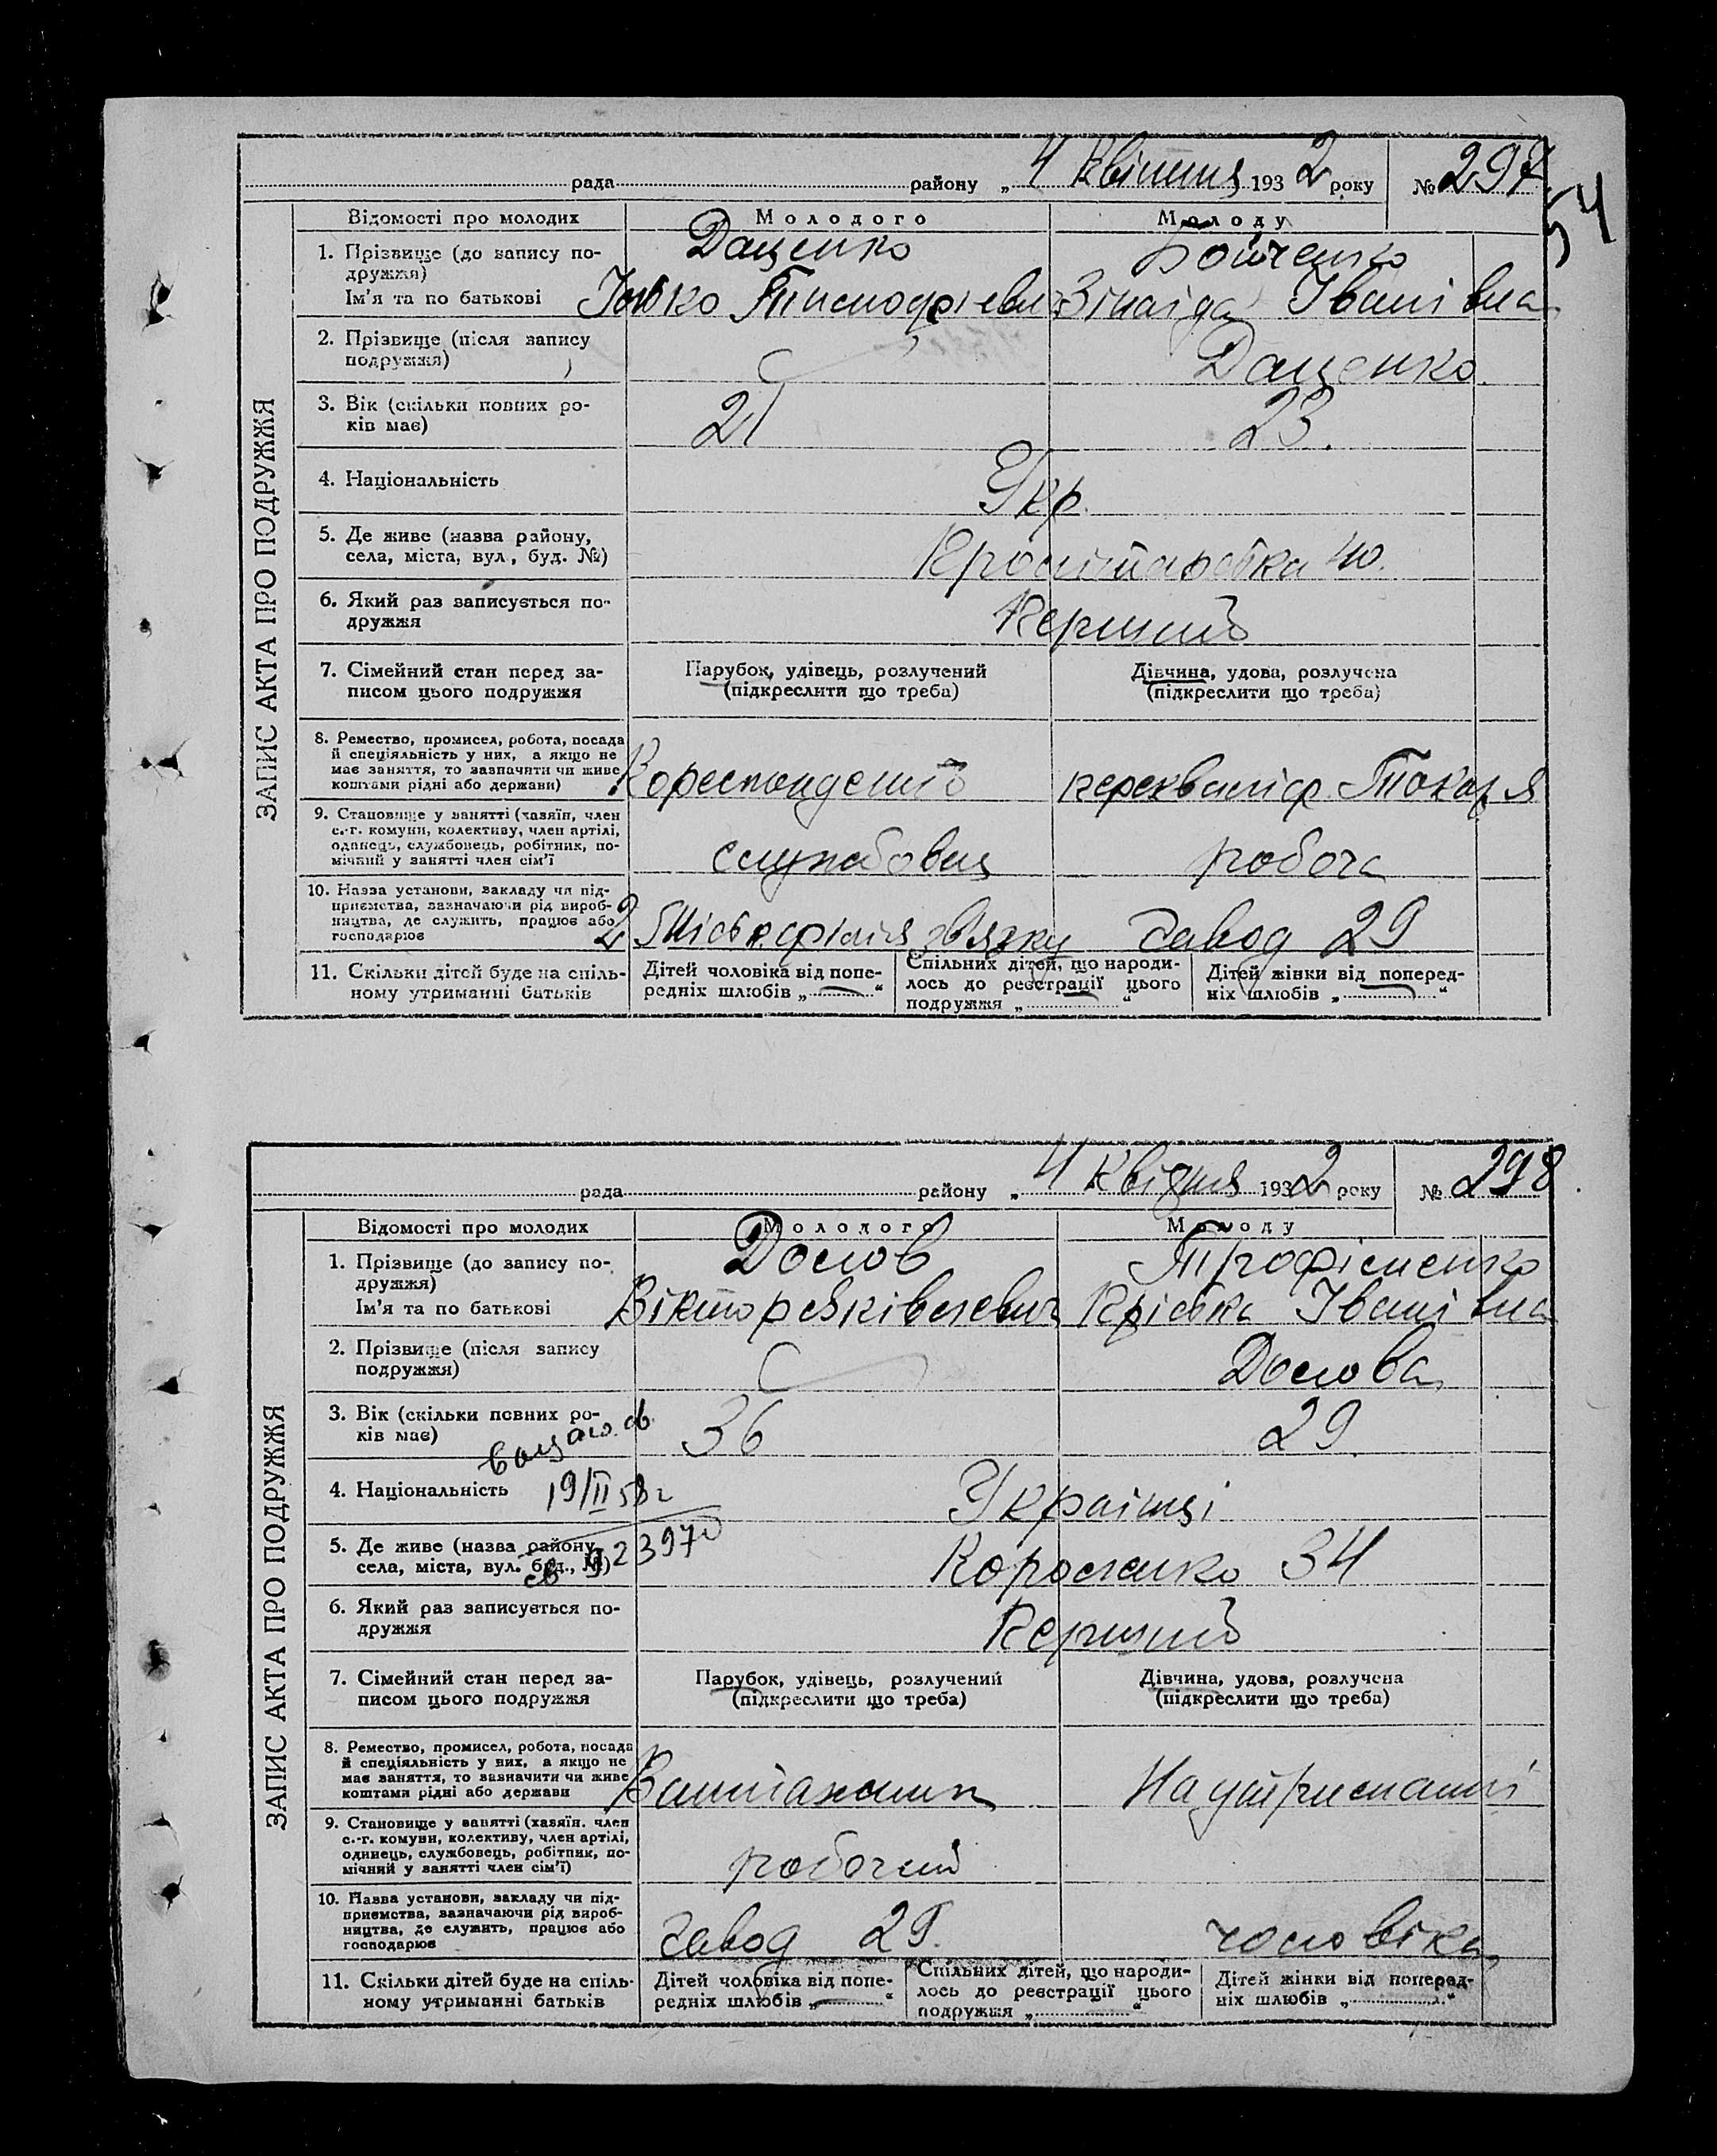 рада района „ 4 квітня 1932 року № 297
54
Відомості про молодих Молодого Молоду
1. Прізвище (до запису по-
дружжя)
Даценко Бойченко
Ім'я та по батькові Зінаїда Іванівна
2. Прізвище (після запису
подружжя)
Даценко
3. Вік (скільки повних ро-
ків має)
21 23.
4. Національність Укр.
5. Де живе (назва району,
села, міста, вул., буд. №)
40.
6. Який раз записується по-
дружжя
Перший
7. Сімейний стан перед за-
писом цього подружжя
Парубок, удівець, розлучений
(підкреслити що треба)
Дівчина, удова, розлучена
(підкреслити що треба)
8. Ремество, промисел, робота, посада
й спеціяльність у них, а якщо не
має заняття, то зазначити чи живе
коштами рідні або держави)
Кореспондент перекваліф. Токаря
9. Становище у занятті (хазяїн, член
с.-г. комуни, колективу, член артілі,
одинець, службовець, робітник, по-
мічний у занятті член сім'ї
службовец робоча
10. Назва установи, закладу чи під-
приємства, зазначаючи рід вироб-
ництва, де служить, працює або
господарює
2 Міськ. філія зв'язку завод 29
11. Скільки дітей буде на спіль-
ному утриманні батьків
Дітей чоловіка від попе-
редніх шлюбів „ “
Спільних дітей, що народи-
лось до реєстрації цього
подружжя „ “
Дітей жінки від поперед-
ніх шлюбів „ “
ЗАПИС АКТА ПРО ПОДРУЖЖЯ
рада району „ 4 квітня 1932 року № 298
Відомості про молодих Молодого Молоду
1. Прізвище (до запису по-
дружжя)
Долов Трофіменко
Ім'я та по батькові Віктор Іванівна
2. Прізвище (після запису
подружжя)
Долова
3. Вік (скільки повних ро-
ків має)
36 29.
4. Національність 19/II 58 г Українці
5. Де живе (назва району,
села, міста, вул. буд., №)
Короленко 34
6. Який раз записується по-
дружжя
Перший
7. Сімейний стан перед за-
писом цього подружжя
Парубок, удівець, розлучений
(підкреслити що треба)
Дівчина, удова, розлучена
(підкреслити що треба)
8. Ремество, промисел, робота, посада
й спеціяльність у них, а якщо не
має заняття, то зазначити чи живе
коштами рідні або держави
На утриманні
9. Становище у занятті (хазяїн. член
с.-г. комуни, колективу, член артілі,
одинець, службовець, робітник, по-
мічний у занятті член сім'ї)
робочий
10. Назва установи, закладу чи під-
приємства, зазначаючи рід вироб-
ництва, де служить, працює або
господарює
завод 29. чоловіка
11. Скільки дітей буде на спіль-
ному утриманні батьків
Дітей чоловіка від попе-
редніх шлюбів „ “
Спільних дітей, що народи-
лось до реєстрації цього
подружжя „ “
Дітей жінки від поперед-
ніх шлюбів „ “
ЗАПИС АКТА ПРО ПОДРУЖЖЯ